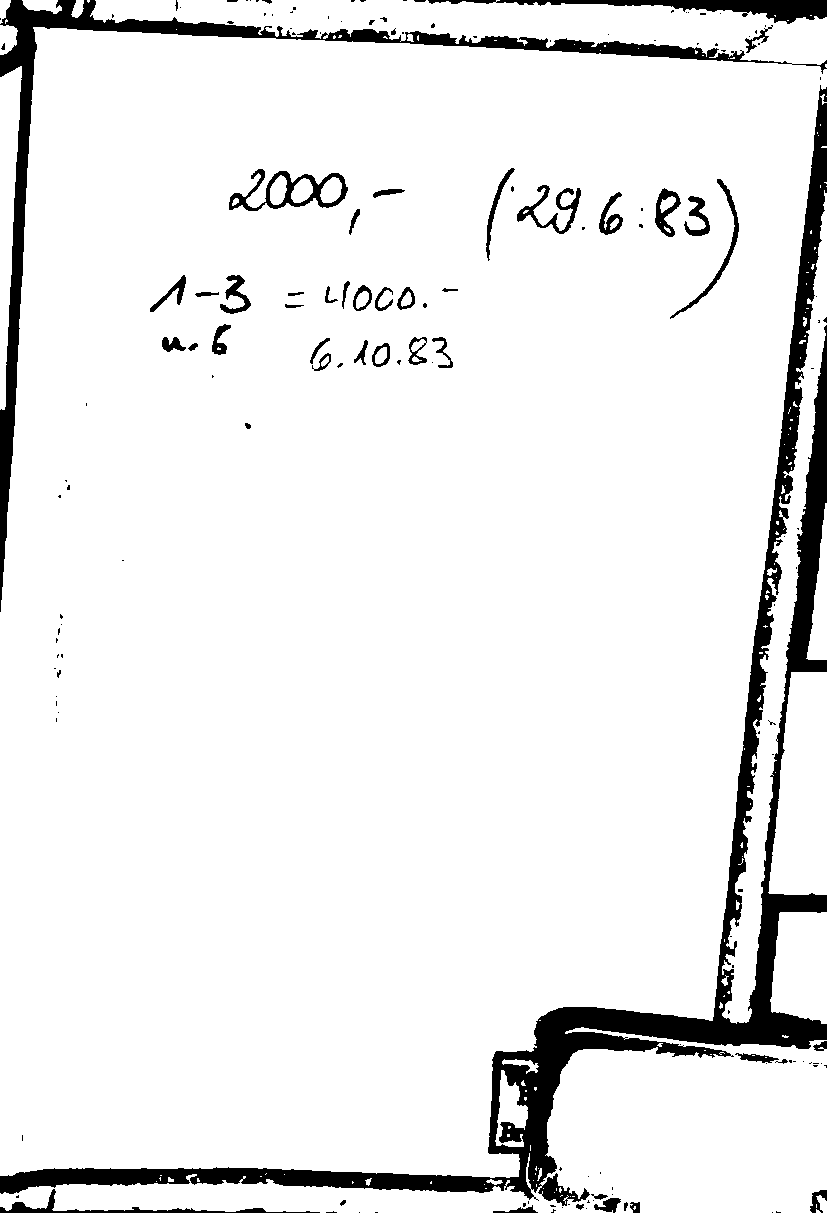 2000,- (29.6.83)
1-3 = 4000.-
u. 6 6.10.83